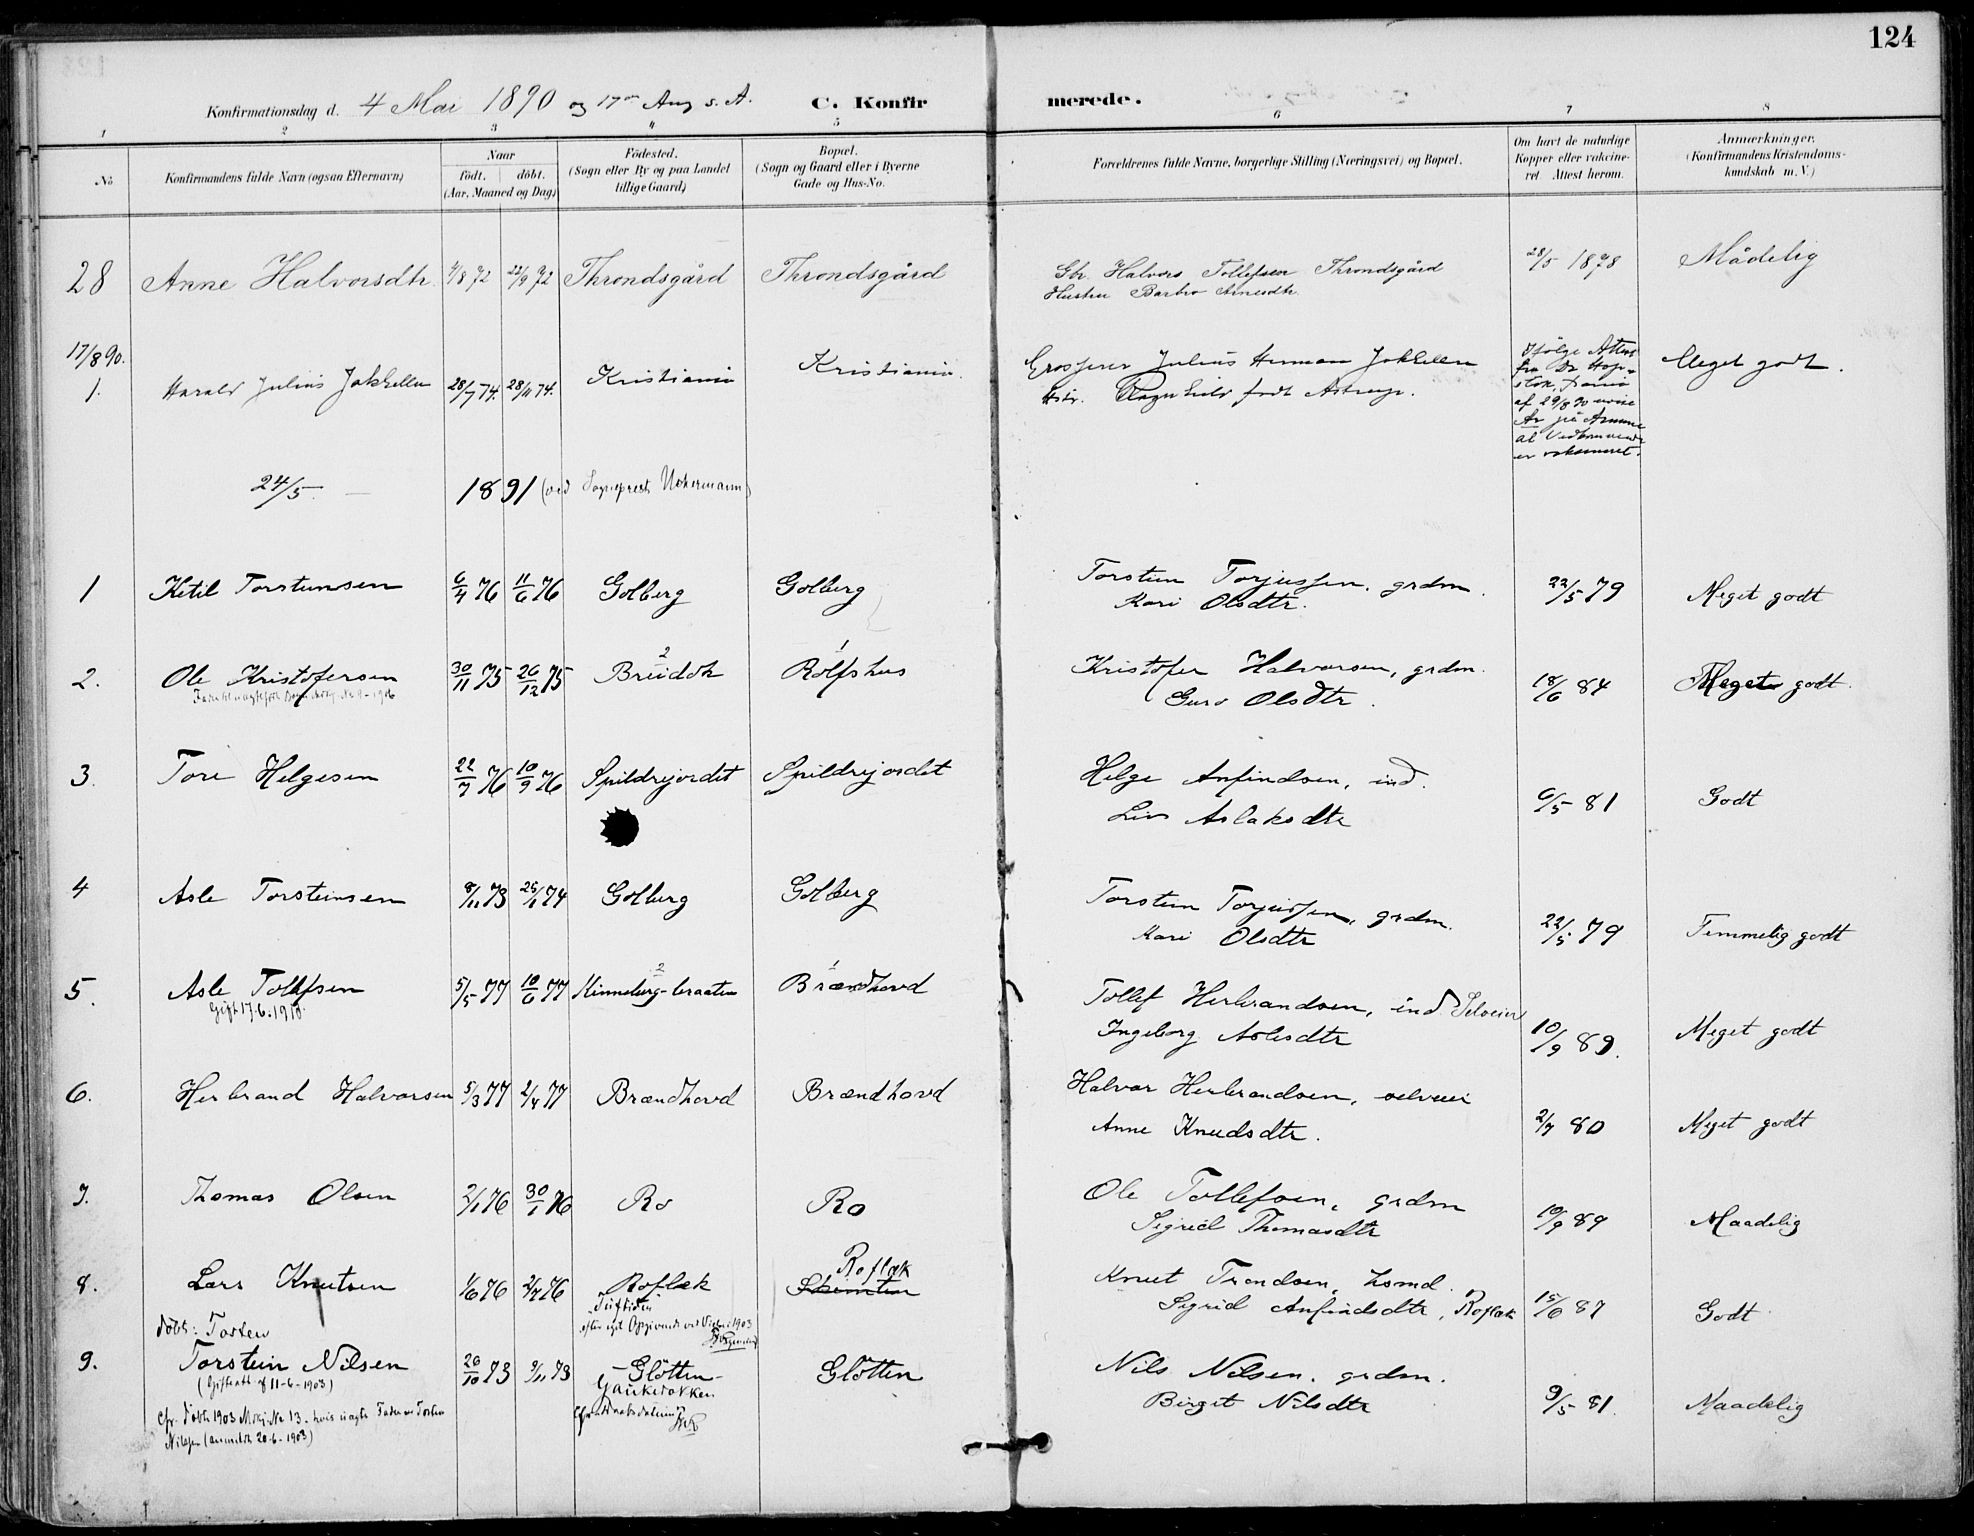 124
Konfirmationsdag d. 4 Mai 1890 og 17de Aug s. A. C. Konfirmerede.
1 2 3 4 5 6 7 8
No
Konfirmandens fulde Navn (ogsaa Efternavn)
Naar
födt. döbt.
(Aar, Maaned og Dag)
Födested.
(Sogn eller By og paa Landet
tillige Gaard)
Bopæl.
(Sogn og Gaard eller i Byerne
Gade og Hus-No.
Forældrenes fulde Navne, borgerlige Stilling (Næringsvei) og Bopæl.
Om havt de naturlige
Kopper eller vakcine-
ret. Attest herom.
Anmærkninger.
(Konfirmandens Kristendoms-
kundskab m. V.)
28 Anne Halvorsdtr 4/8 72 22/9 72 Throndsgård Throndsgård Gbr. Halvor Tollefsen Throndsgård 28/5 1878 Mådelig
Hustru Barbro Arnesdtr.
17/8 90.
1. Harald Julius Jakhelln 28/7 74. 28/11 74. Kristiania Kristiania. Grosserer Julius Herman Jakhelln Ifölge Attest Meget godt.
Hstr. Ragnhild födt Astrup. fra Dr
af 29/8 90
Ar på Armene
at Vedkommende
er vaksineret.
24/5 1891 (ved Sogneprest Uckermann)
1 Ketil Torsteinsen 6/4 76 11/6 76 Golberg Golberg Torstein Torjussen, grdm. 22/5 79 Meget godt
Kari Olsdtr.
2. Ole Kristofersen 30/11 75 26/12 75 2 Breidok 1 Rolfshus Kristofer Halvorsen, grdm. 18/6 84 Meget godt.
Guro Olsdtr.
3. Tore Helgesen 22/7 76 10/9 76 Spildrejordet Spildrejordet Helge Anfindsen, ind. 6/5 81 Godt
Liv Aslaksdtr
4 Asle Torsteinsen 8/11 73 25/1 74 Golberg Golberg Torstein Torjussen, grdm. 22/5 79 Temmelig godt
Kari Olsdtr
5. Asle Tollefsen 5/5 77 10/6 77 2 Kinneberg-braaten 1 Brændhovd Tollef Herbrandsen, ind. Selveier 10/9 89. Meget godt
Gift 17-6-1910. Ingeborg Aslesdtr
6. Herbrand Halvorsen 5/3 77 2/4 77 Brændhovd Brændhovd Halvor Herbrandsen, selveier 2/7 80 Meget godt
Anne Knudsdtr.
7. Thomas Olsen 2/1 76 30/1 76 Ro Ro Ole Tollefsen, grdm 10/9 89 Maadelig
Sigrid Thomasdtr
8. Lars Knutsen 1/6 76 2/7 76 Roflak Roflak Knut Trondsen, husmd. 15/6 87 Godt
Sigrid Anfindsdtr, Roflak
döbt: Tosten
efter eget Opgivende ved Vielse 1903
9. Torstein Nilsen 26/10 73 9/11 73 Glötten Glötten Nils Nilsen, grdm. 9/5 81. Maadelig
(Gifteatt. af 11-6-1903) Birgit Nilsdtr
Gaukebakken
cfr. döbte 1903 Mkj. No 13 - hvis uægte Fader er Tosten
Nilsen (anmeldt 20-6-1903)